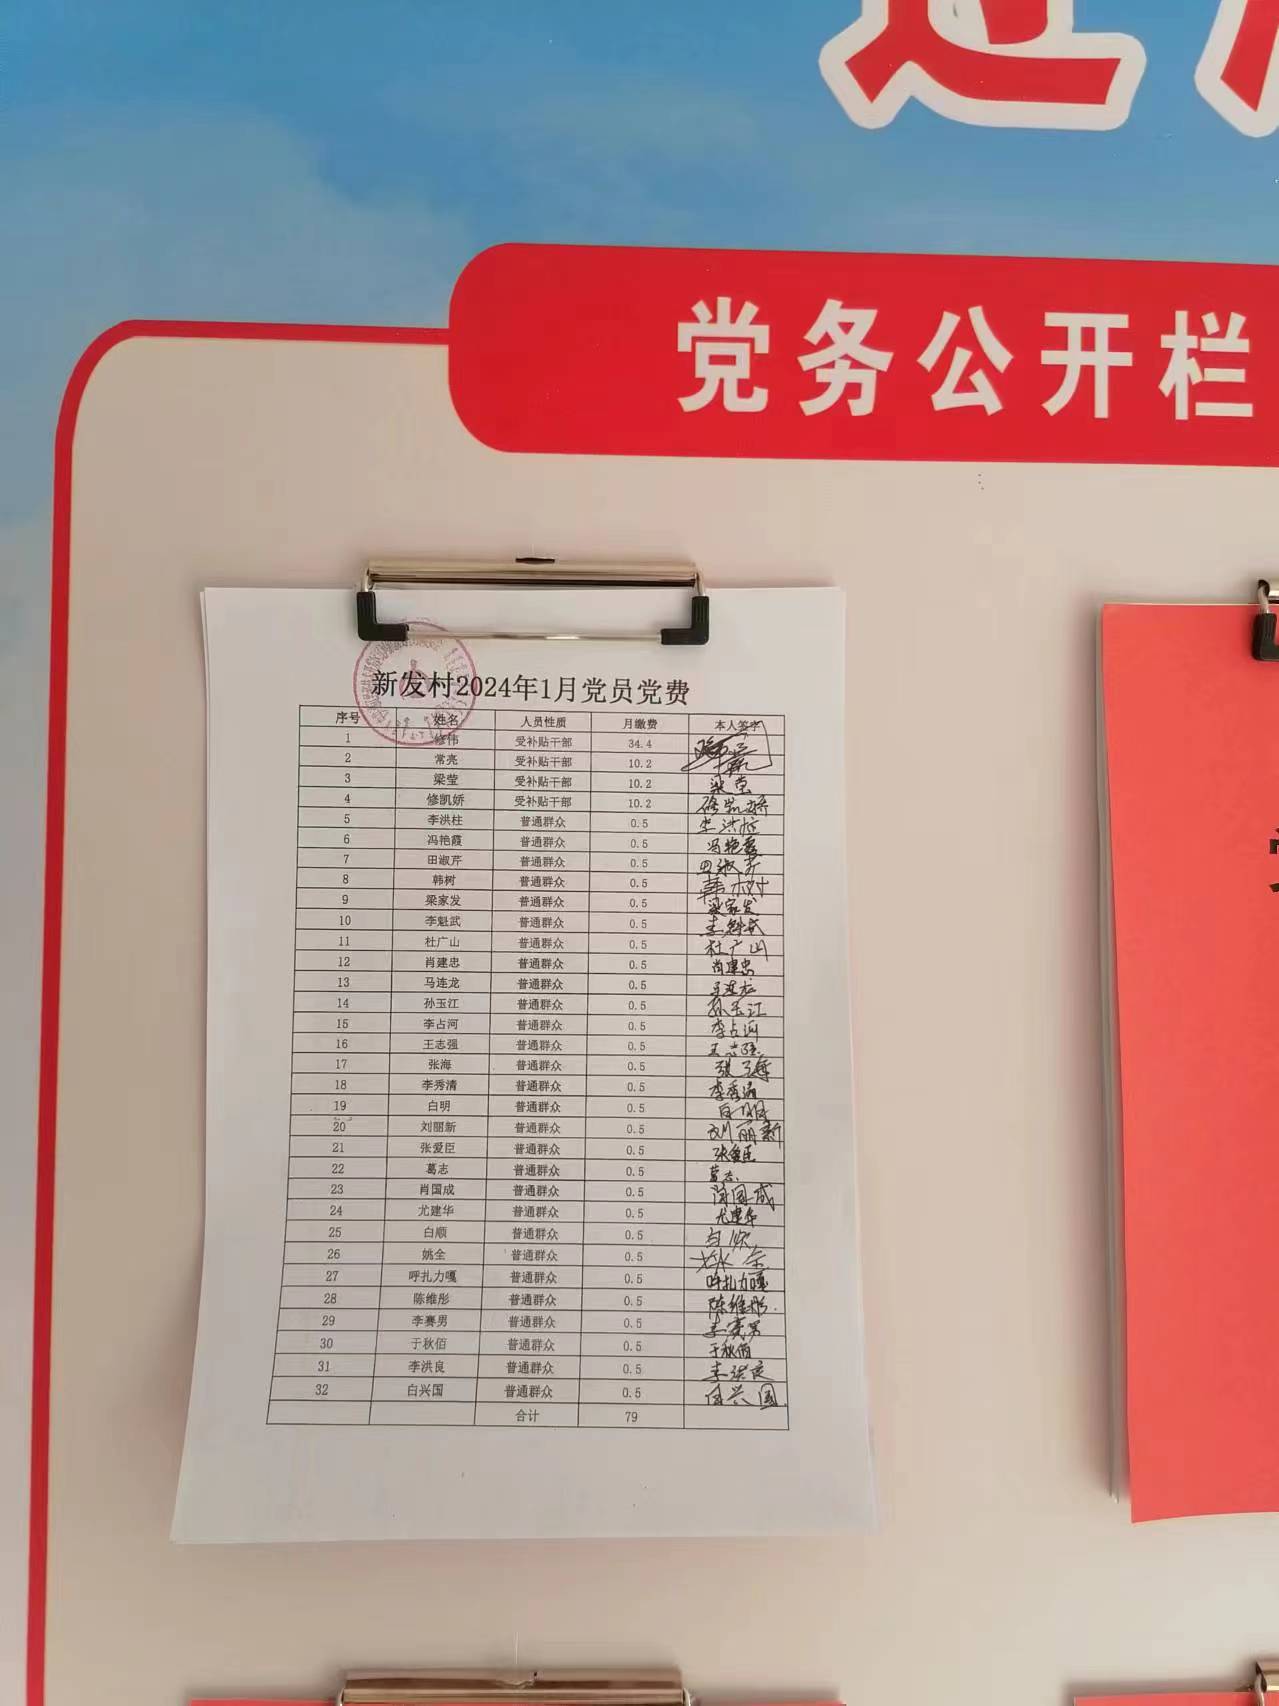 党务公开栏
新发村2024年1月党员党费
序号 姓名 人员性质 月缴费 本人签字
1 修伟 受补贴干部 34.4
2 常亮 受补贴干部 10.2
3 梁莹 受补贴干部 10.2 梁莹
4 修凯娇 受补贴干部 10.2 修凯娇
5 李洪柱 普通群众 0.5 李洪柱
6 冯艳霞 普通群众 0.5 冯艳霞
7 田淑芹 普通群众 0.5 田淑芹
8 韩树 普通群众 0.5 韩树
9 梁家发 普通群众 0.5 梁家发
10 李魁武 普通群众 0.5 李魁武
11 杜广山 普通群众 0.5 杜广山
12 肖建忠 普通群众 0.5 肖建忠
13 马连龙 普通群众 0.5 马连龙
14 孙玉江 普通群众 0.5 孙玉江
15 李占河 普通群众 0.5 李占河
16 王志强 普通群众 0.5 王志强
17 张海 普通群众 0.5 张海
18 李秀清 普通群众 0.5 李秀清
19 白明 普通群众 0.5 白明
20 刘丽新 普通群众 0.5 刘丽新
21 张爱臣 普通群众 0.5 张爱臣
22 葛志 普通群众 0.5 葛志
23 肖国成 普通群众 0.5 肖国成
24 尤建华 普通群众 0.5 尤建华
25 白顺 普通群众 0.5 白顺
26 姚全 普通群众 0.5 姚全
27 呼扎力嘎 普通群众 0.5 呼扎力嘎
28 陈维彤 普通群众 0.5 陈维彤
29 李赛男 普通群众 0.5 李赛男
30 于秋佰 普通群众 0.5 于秋佰
31 李洪良 普通群众 0.5 李洪良
32 白兴国 普通群众 0.5 白兴国
合计 79